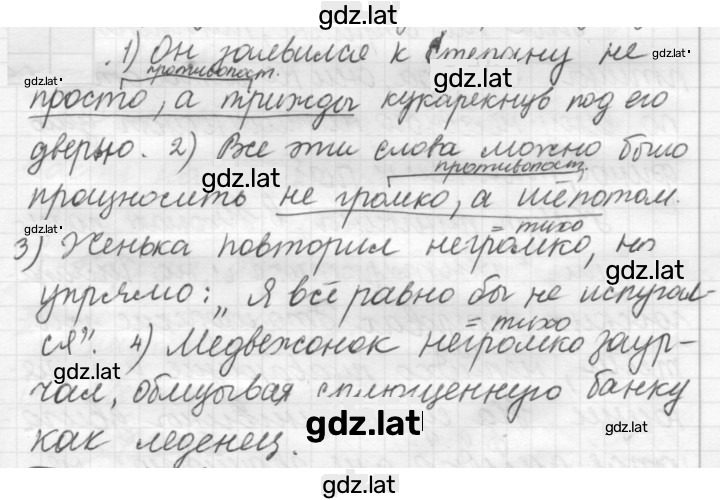 gdz.lat
1) Он заявился к Степану не
gdz.lat
gdz.lat
противопост.
gdz.lat
просто, а трижды кукарекнув под его
gdz.lat
дверью. 2) Все эти слова можно было
противопост.
gdz.lat
произносить не громко, а шёпотом.
gdz.lat
= тихо
3) Женька повторил негромко, но
gdz.lat
упрямо: „Я всё равно бы не испугал-
= тихо
ся". 4) Медвежонок негромко заур-
gdz.lat
чал, облизывая сплющенную банку
gdz.lat
gdz.lat
как леденец.
gdz.lat